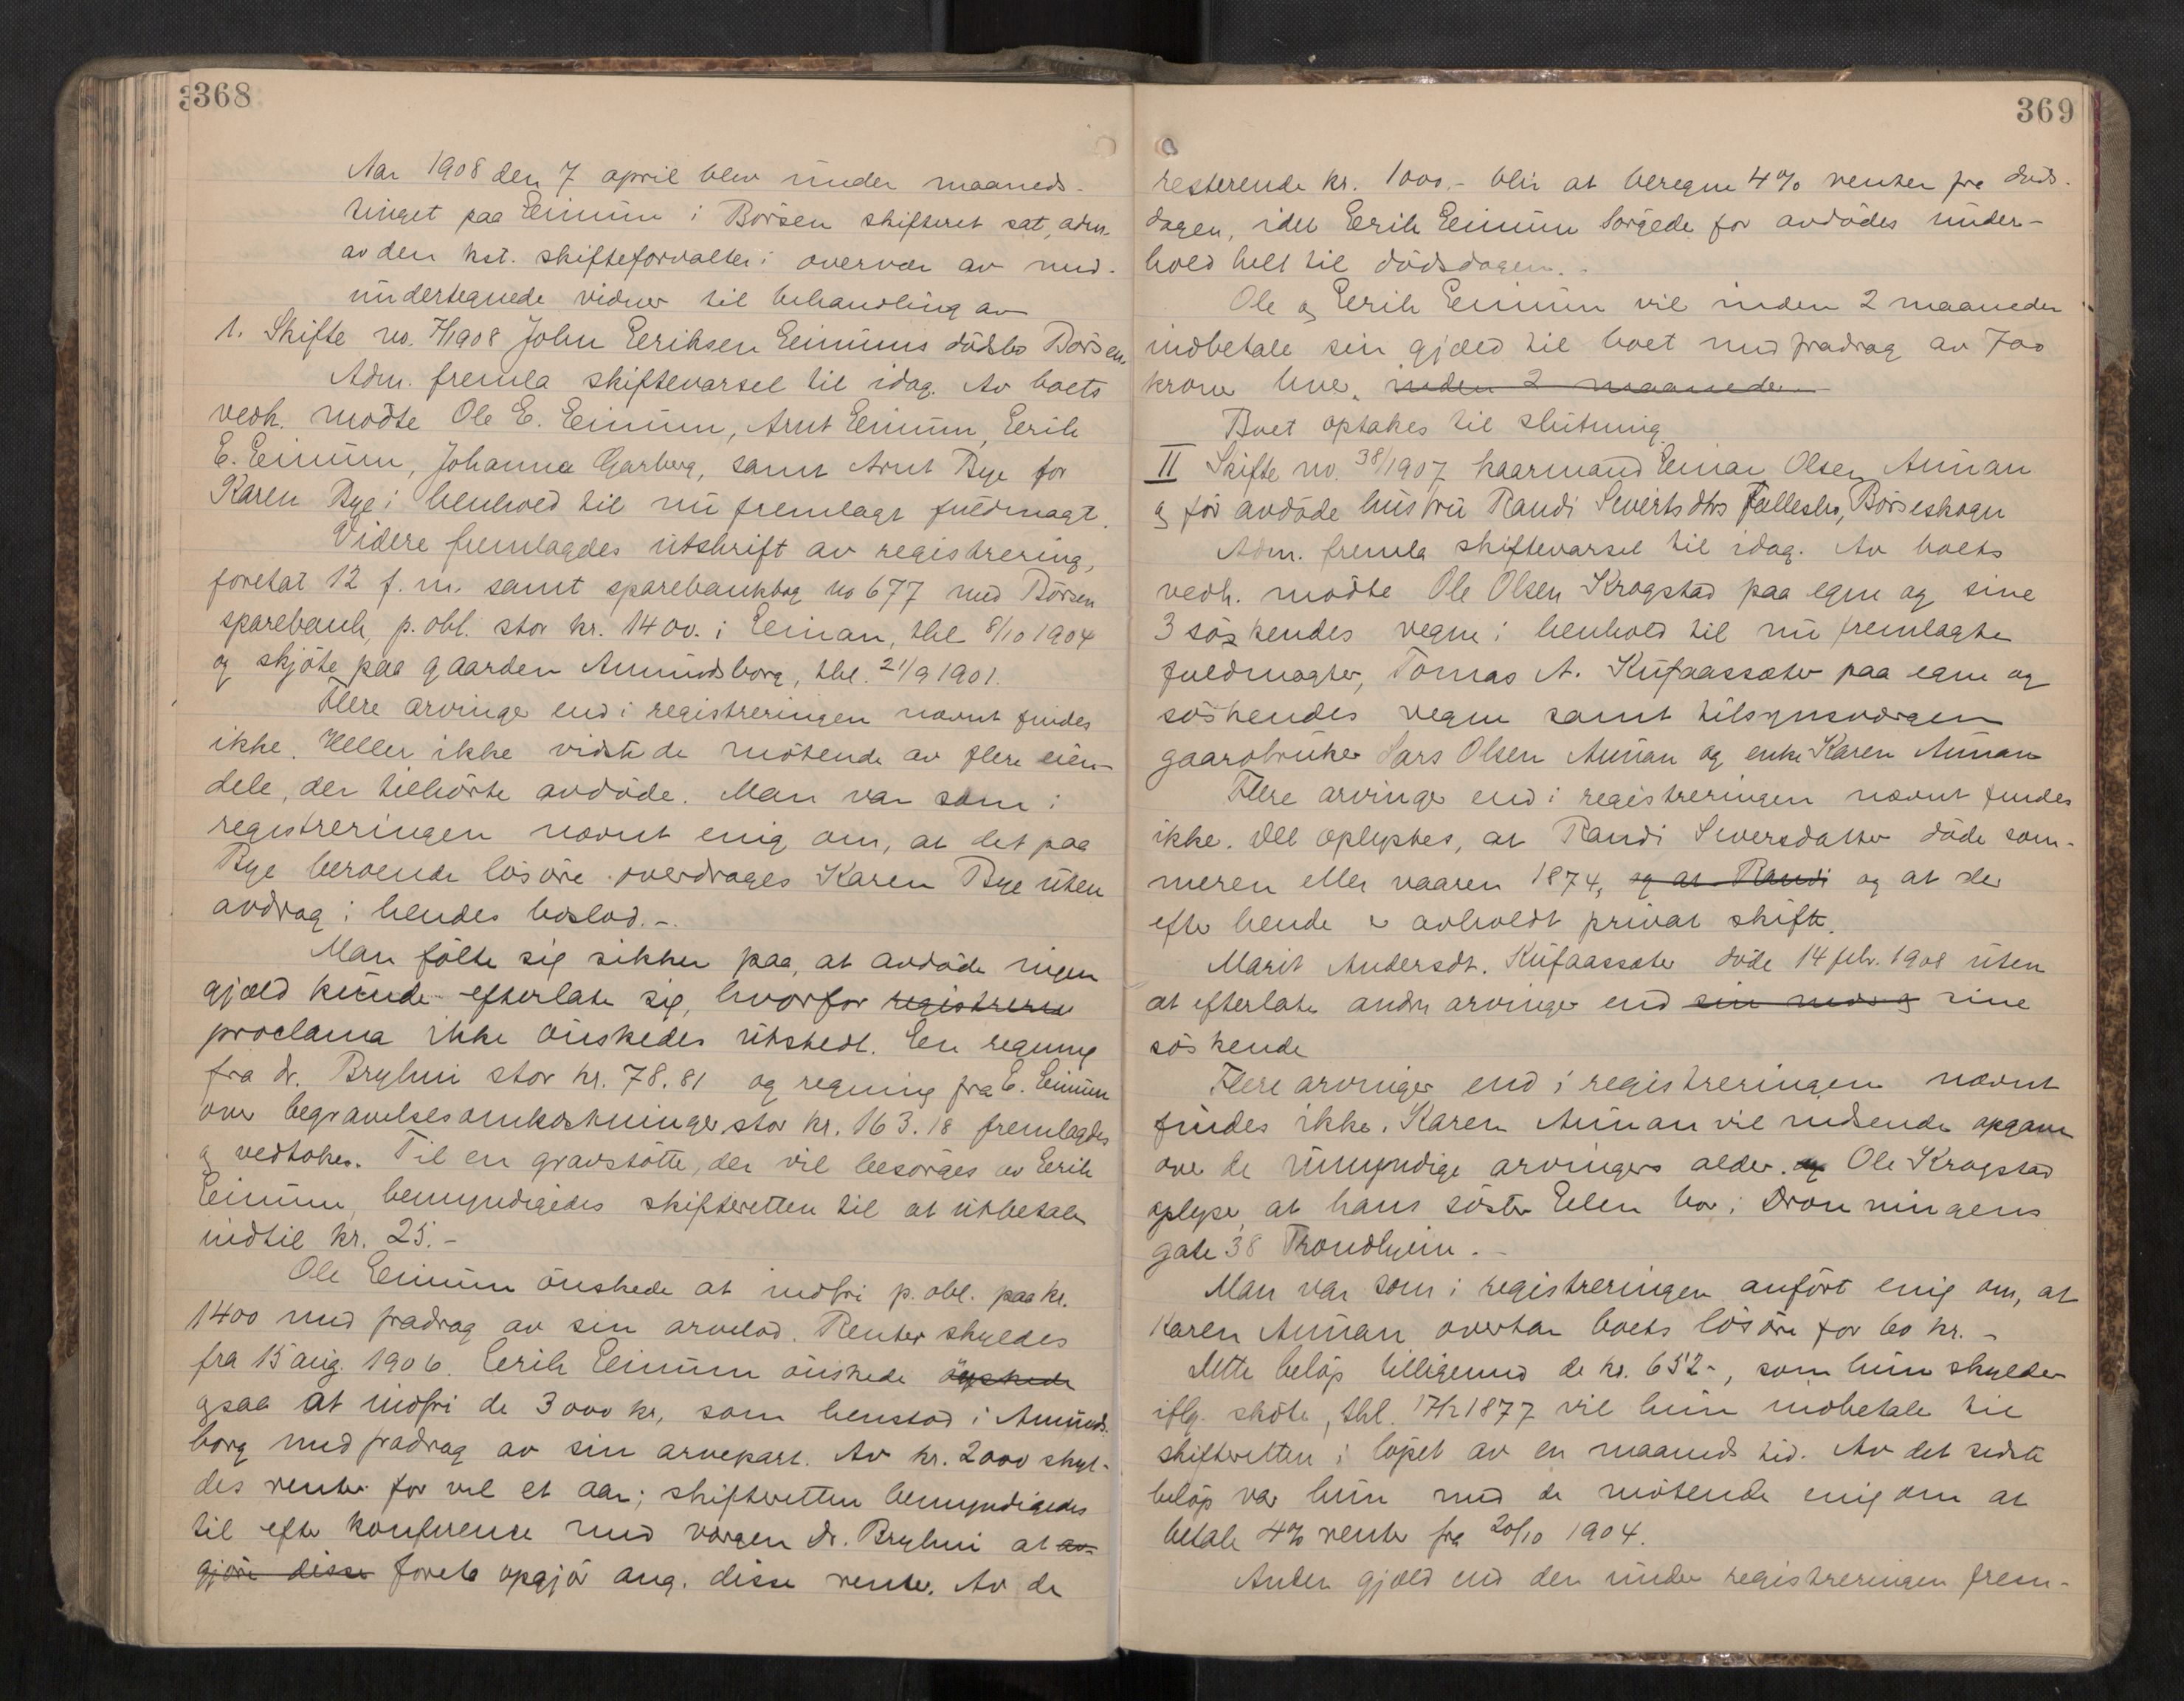 368
Aar 1908 den 7 april blev under maaneds-
tinget paa Eimum i Börsen skifteret sat, adm.
av den kst. skifteforvalter i overvær av med-
undertegnede vidner til behandling av
1. Skifte no. 7/1908 John Eeriksen Eimums dödsbo Börsen.
Adm. fremla skiftevarsel til idag. Av boets
vedk. mödte Ole E. Eimum, Arnt Eimum, Eerik
E. Eimum, Johanna Garberg, samt Arnt Bye for
Karen Bye i henhold til nu fremlagt fuldmagt.
Videre fremlagdes utskrift av registrering,
foretat 12 f. m. samt sparebankbog no 677 med Börsen
sparebank, p. obl. stor kr. 1400. i Eeinan, thl. 8/10 1904
og skjöte paa gaarden Amundsborg, thl. 21/9 1901.
Flere arvinger end i registreringen nævnt findes
ikke. Heller ikke vidste de mötende av flere eien-
dele, der tilhörte avdöde. Man var som i
registreringen nævnt enig om, at det paa
Bye beroende lösöre overdrages Karen Bye uten
avdrag i hendes boslod. -
Man fölte sig sikker paa, at avdöde ingen
gjæld kunde efterlate sig, hvorfor registrere
proclama ikke önskedes utstedt. En regning
fra dr. Bryhni stor kr. 78.81 og regning fra E. Eimum
over begravelsesomkostninger stor kr. 163.18 fremlagdes
og vedtokes. Til en gravstötte, der vil besörges av Eerik
Eimum, bemyndigedes skifteretten til at utbetale
indtil kr. 25. -
Ole Eimum önskede at indfri p. obl. paa kr.
1400 med fradrag av sin arvelod. Renter skyldes
fra 15 aug. 1906. Eerik Eimum önskede önskede
ogsaa at indfri de 3000 kr, som henstod i Amunds-
borg med fradrag av sin arvepart. Av kr. 2000 skyl-
des renter for vel et aar; skifteretten bemyndigedes
til efter konference med værgen dr. Bryhni at av-
gjöre disse foreta opgjör ang. disse renter. Av de
369
resterende kr. 1000,- blir at beregne 4% renter fra döds-
dagen, idet Eerik Eimum sörgede for avdödes under-
hold helt til dödsdagen.
Ole og Eerik Eimum vil inden 2 maaneder
indbetale sin gjæld til boet med fradrag av 700
kroner hver. inden 2 maaneder
Boet optakes til slutning.
II Skifte no. 38/1907 kaarmand Einar Olsen Aunan
og för avdöde hustru Randi Sivertsdtrs fællesbo, Börseskogn
Adm. fremla skiftevarsel til idag. Av boets
vedk. mödte Ole Olsen Krogstad paa egne og sine
3 söskendes vegne i henhold til nu fremlagte
fuldmagter, Tomas A. Kufaassæter paa egne og
söskendes vegne samt tilsynsværgen
gaardbruker Lars Olsen Aunan og enke Karen Aunan
Flere arvinger end i registreringen nævnt findes
ikke. Det oplystes, at Randi Siversdatter döde som-
meren eller vaaren 1874, og at Randi og at der
efter hende er avholdt privat skifte.
Marit Andersdt. Kufaassæter döde 14 febr. 1908 uten
at efterlate andre arvinger end sin mor og sine
söskende
Flere arvinger end i registreringen nævnt
findes ikke. Karen Aunan vil indsende opgave
over de umyndige arvingers alder. og Ole Krogstad
oplyser, at hans söster Elen bor i Dronningens
gate 38 Trondhjem. -
Man var som i registreringen anfört enig om, at
Karen Aunan overtar boets lösöre for 60 kr. -
Dette belöp tilligemed de kr. 652-, som hun skylder
iflg. sköte, thl. 17/2 1877 vil hun indbetale til
skifteretten i löpet av en maaneds tid. Av det sidste
belöp var hun med de mötende enig om at
betale 4% renter fra 20/10 1904.
Anden gjæld end den under registreringen frem-